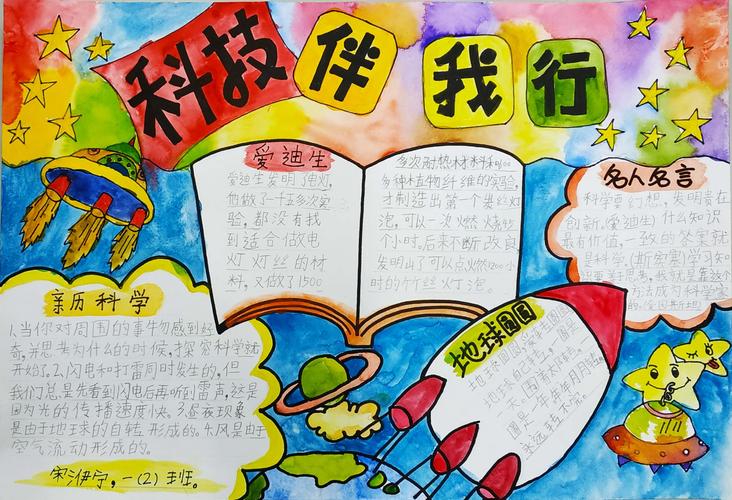 科技伴我行
爱迪生
爱迪生发明了电灯,
他做了一千五多次实
验,都没有找
到适合做电
灯灯丝的材
料,又做了1500
多次耐热材料和600
多种植物纤维的实验,
才制造出第一个炭丝灯
泡,可以一次燃烧45
个小时。后来不断改良
发明出了可以点燃1200小
时的竹丝灯泡。
名人名言
科学要幻想,发明贵在
创新。(爱迪生)什么知识
最有价值,一致的答案就
是科学。(斯宾塞)学习知
识要善于思考,我就是靠这个
方法成为科学家
的。(爱因斯坦)
亲历科学
1.当你对周围的事物感到好
奇,并思考为什么的时候,探究科学就
开始了。2.闪电和打雷同时发生的,但
我们总是先看到闪电后再听到雷声,这是
因为光的传播速度快。3.昼夜现象
是由于地球的自转形成的。4.风是由于
空气流动形成的。
宋泇宁,一(2)班。
地球圆圆
地球
一天。围着太阳转,一
圈是一年。年年月月
永远转不停。